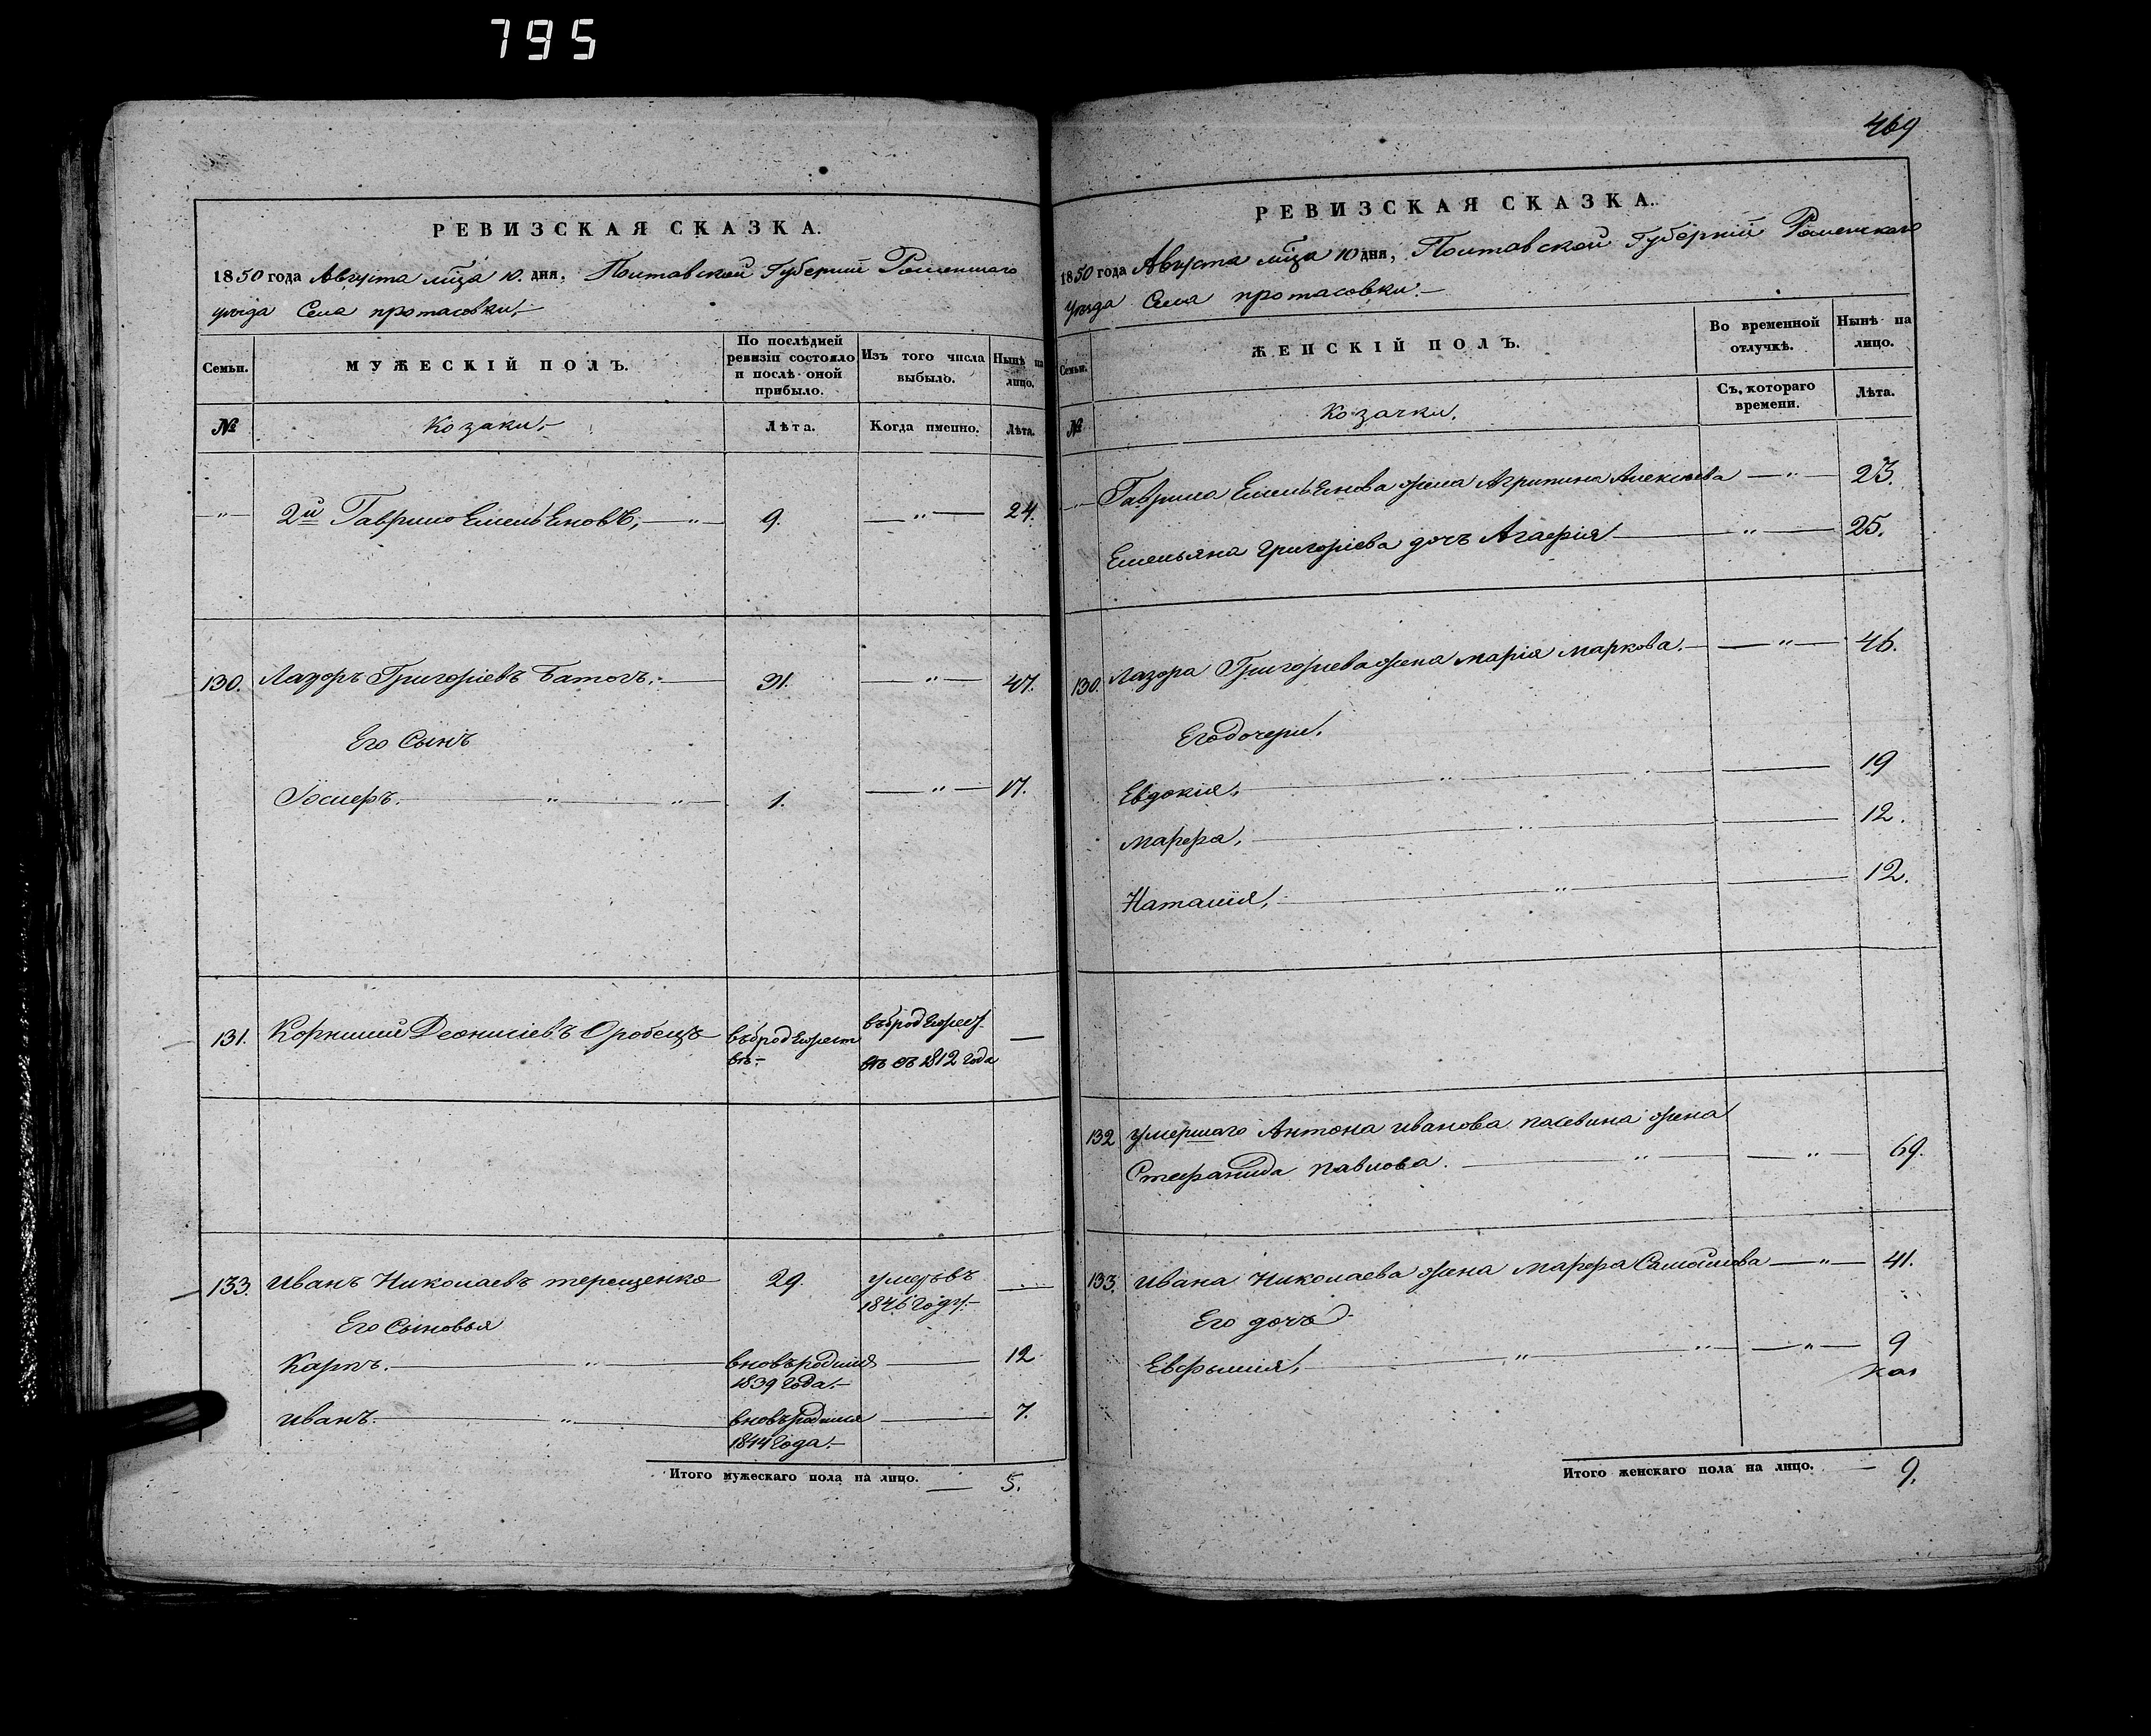 795
РЕВИЗСКАЯ СКАЗКА.
1850 года Августа мца 10. дня, Полтавской Губернии Роменскаго
уезда Села протасовки.
Семьи.
МУЖЕСКІЙ ПОЛЪ.
По послѣдней ревизіи состояло и послѣ оной прибыло.
Изъ того числа выбыло.
Нынѣ на лицо.
№
Козаки.
Лѣта.
Когда именно.
Лѣта.
2й Гаврило Емельеновъ, 9. 24.
130. Лазоръ Григоріевъ Батогъ. 31. 47.
Его Сынъ
Іосифъ. 1. 17.
131. Корнилий Деонисіевъ Оробецъ въ бродяжест въ бродяжест
вѣ вѣ съ 1812 года
133. Иванъ Николаевъ терещенко 29 умеръ въ
1846 году.
Его Сыновья
Карпъ. вновьродился 12
1839 года.
Иванъ. вновьродился 7.
1844 года.
Итого мужескаго пола на лицо. 5.
469
РЕВИЗСКАЯ СКАЗКА.
1850 года Августа мца 10 дня, Полтавской Губернии Роменскаго
уезда Села протасовки.
Семьи.
ЖЕНСКІЙ ПОЛЪ.
Во временной отлучкѣ.
Нынѣ на лицо.
Съ котораго времени.
Лѣта.
№
Козачки.
Гаврила Емельенова жена Агрипина Алексѣева 23.
Емельяна Григоріева дочъ Агафія 25.
130. Лазора Григориева жена марія маркова. 46.
Его дочери.
Евдокия. 19
марфа, 12.
Наталия, 12.
132 умершаго Антона иванова жена
Стефанида павлова. 69.
133. Ивана Николаева жена марфа Самойлова 41.
Его дочъ
Евфимия, 9
Итого женскаго пола на лицо. 9.